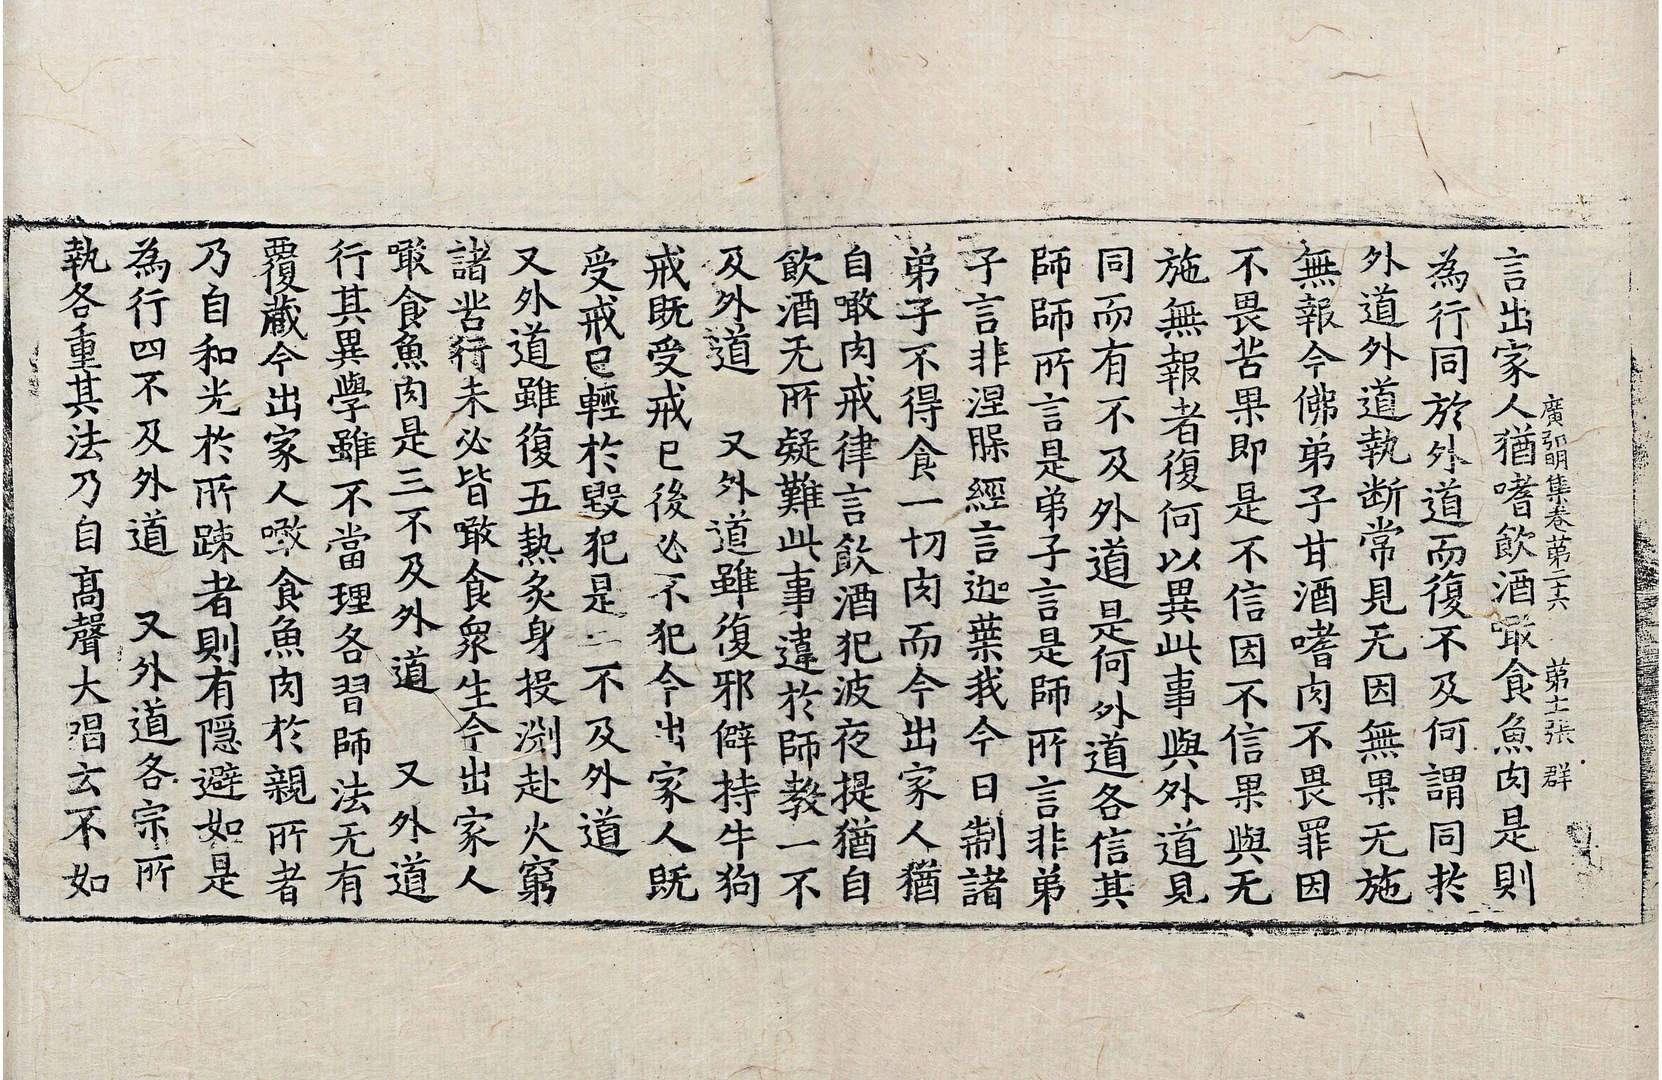 廣弘明集卷第二十六　第十二張　群
言出家人猶嗜飲酒噉食魚肉是則
為行同於外道而復不及何謂同於
外道外道執断常見无因無果无施
無報今佛弟子甘酒嗜肉不畏罪因
不畏苦果即是不信因不信果與无
施無報者復何以異此事與外道見
同而有不及外道是何外道各信其
師師所言是弟子言是師所言非弟
子言非涅脲經言迦葉我今日制諸
弟子不得食一切肉而今出家人猶
自噉肉戒律言飲酒犯波夜提猶自
飲酒无所疑難此事違於師教一不
及外道　又外道雖復邪僻持牛狗
戒既受戒已後必不犯今出家人既
受戒已輕於毀犯是二不及外道
又外道雖復五熱炙身投渊赴火窮
諸苦行未必皆噉食衆生今出家人
噉食魚肉是三不及外道　又外道
行其異學雖不當理各習師法无有
覆藏今出家人噉食魚肉於親所者
乃自和光於所踈者則有隱避如是
為行四不及外道　又外道各宗所
執各重其法乃自髙聲大唱云不如